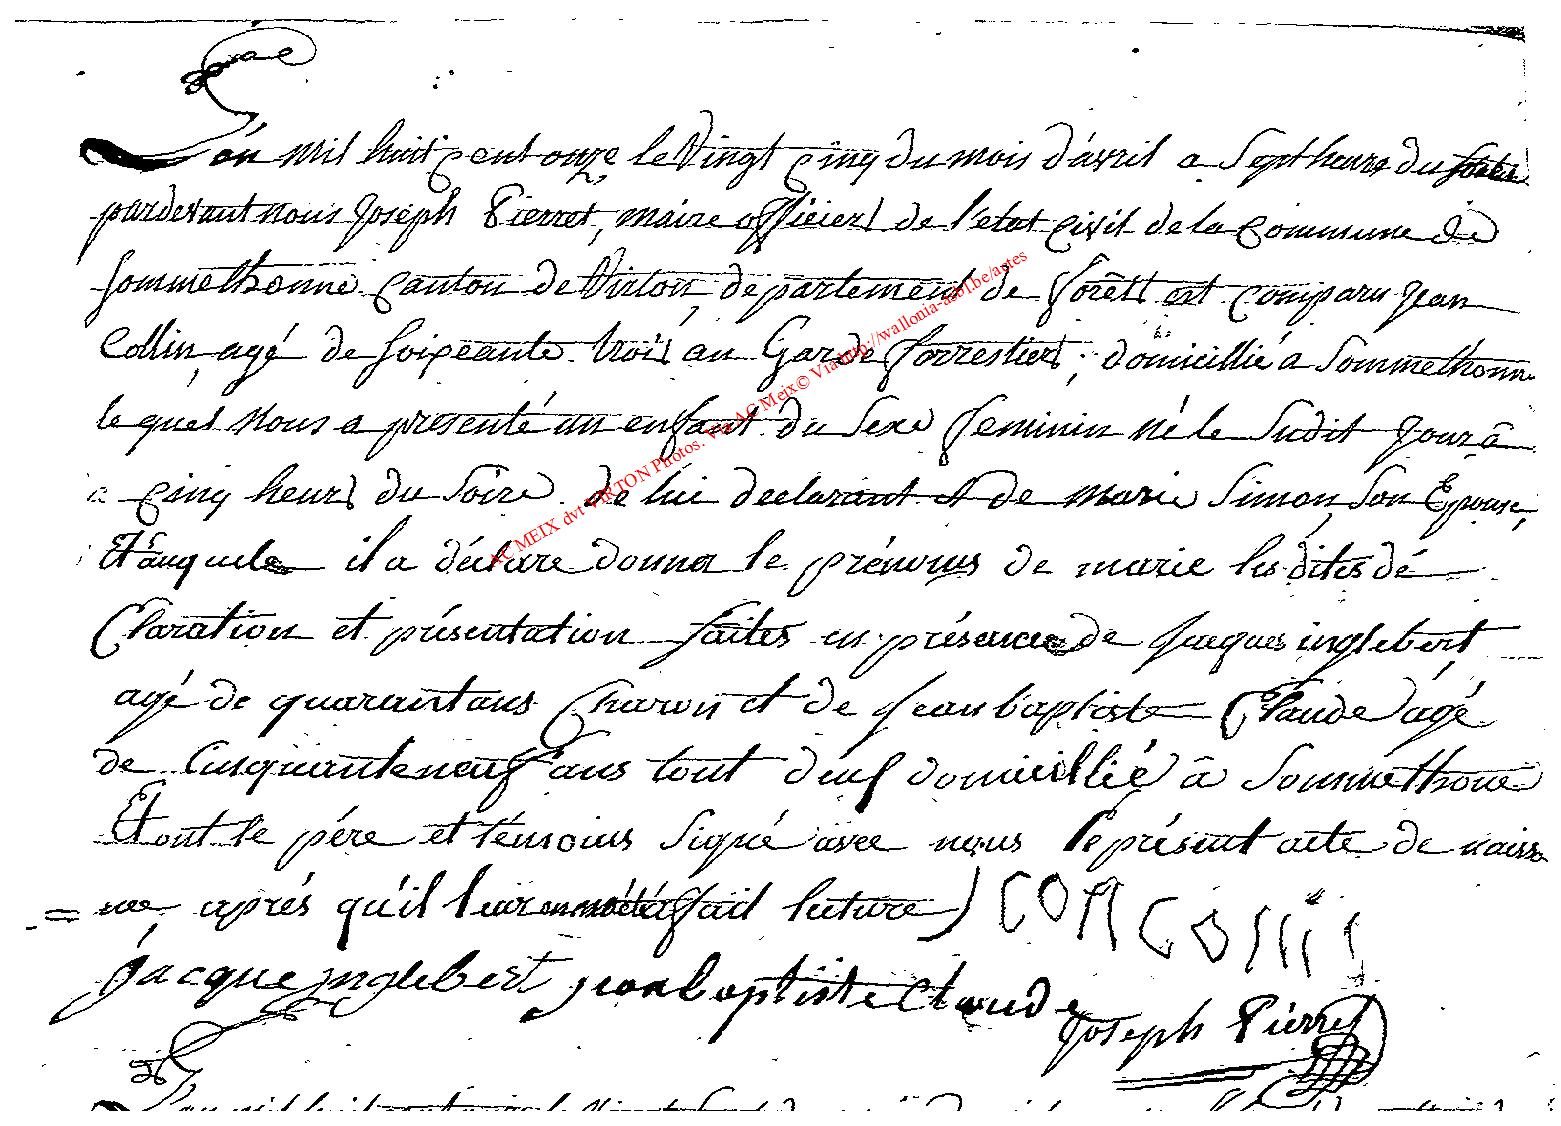 L'an mil huit cent onze le Vingt cinq du mois d'avril a Sept heures du
pardevant nous Joseph Pierret, maire officier de l'etat civil de la commune de
Sommethonne canton de Virton, departement de forêts est comparu Jean
Collin, agé de Soixeante trois an Garde forrestier, domicillié a Sommethonne
le quel Nous a presenté un enfant du Sexe feminin né le Sudit Jour â
a cinq heurs du Soire de lui declarant et de marie Simon, Son Epouse,
Et auquele il a déclare donner le prénoms de marie les dites dé
Claration et présentation faites en présence de Jacques inglebert
agé de quarant ans Charon et de Jean baptiste Claude âgé
de Cinquante neuf ans tout deux domicillié â Sommethone
Et ont le pére et témoins Signé avec nous le présent acte de naiss
= nce aprés qu'il leur en a été fait lecture
Jacque inglebert jean baptiste Claude
Joseph Pierret
AC MEIX dvt VIRTON Photos. Via AC Meix© Via http://wallonia-asbl.be/actes